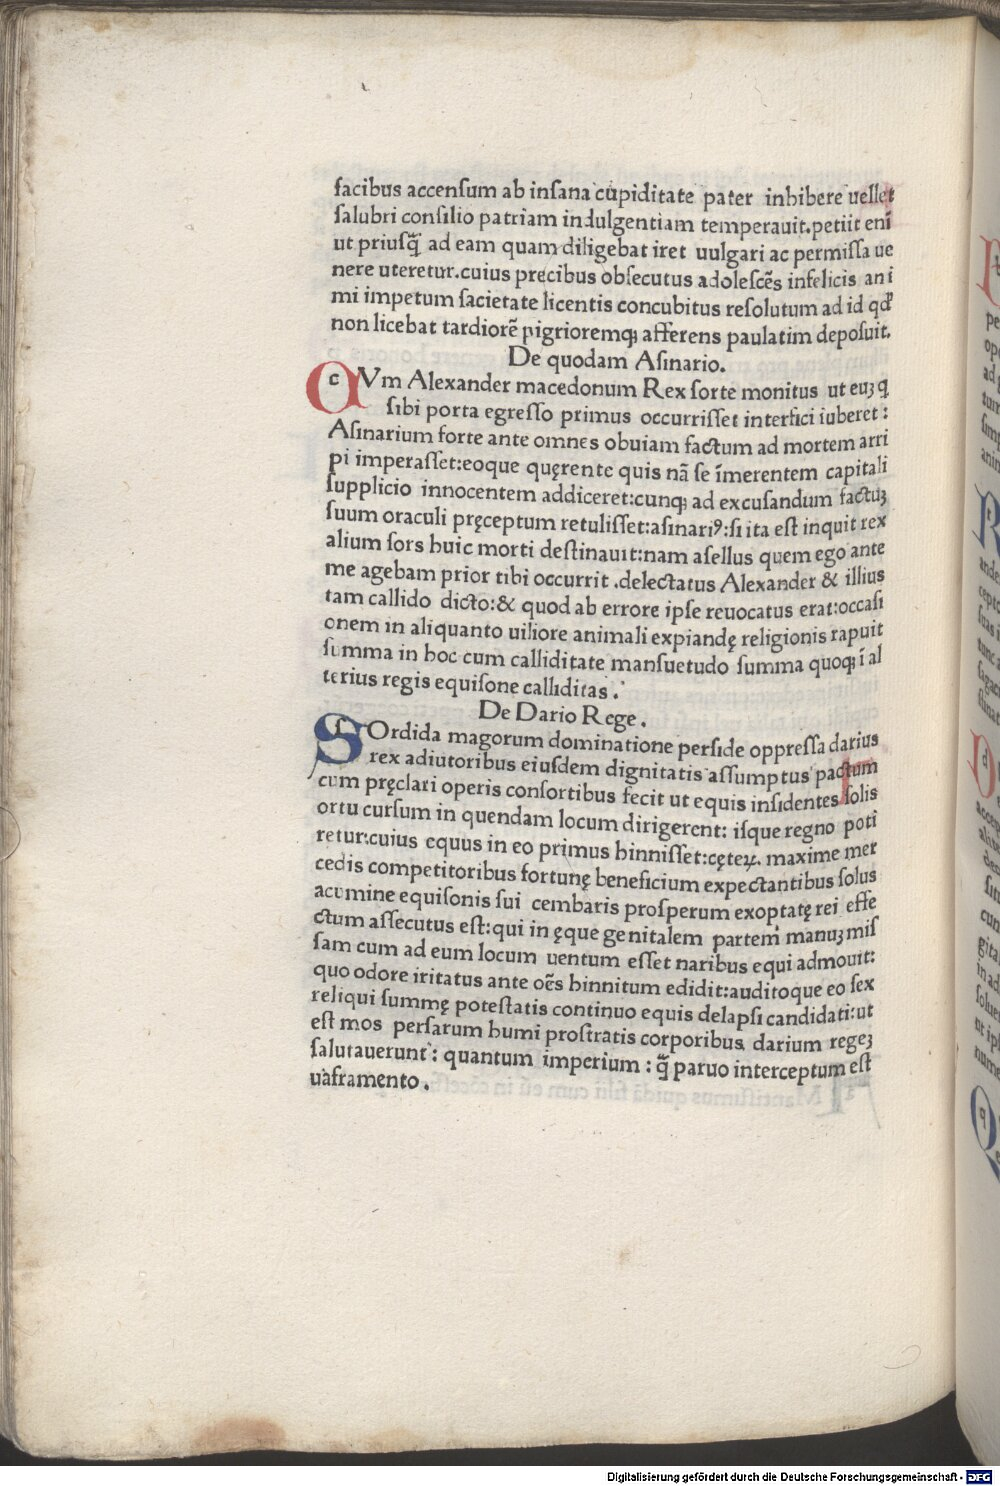 facibus accenſum ab inſana cupiditate pater inhibere uellet
ſalubri conſilio patriam indulgentiam temperauit.petiit enī
ut priuſq̄ ad eam quam diligebat iret uulgari ac permiſſa ue
nere uteretur.cuius precibus obſecutus adoleſcēs infelicis anī
mi impetum ſacietate licentis concubitus reſolutum ad id qđ
non licebat tardiorē pigrioremqꝫ afferens paulatim depoſuit.
De quodam Aſinario.
cVm Alexander macedonum Rex ſorte monitus ut euꝫ q
ſibi porta egreſſo primus occurriſſet interfici iuberet:
Aſinarium forte ante omnes obuiam factum ad mortem arri
pi imperaſſet:eoque quęrente quis nā ſe īmerentem capitali
ſupplicio innocentem addiceret:cunqꝫ ad excuſandum factuꝫ
ſuum oraculi pręceptum retuliſſet:aſinariꝰ:ſi ita eſt inquit rex
alium ſors huic morti deſtinauit:nam aſellus quem ego ante
me agebam prior tibi occurrit .delectatus Alexander & illius
tam callido dicto:& quod ab errore ipſe reuocatus erat:occaſi
onem in aliquanto uiliore animali expiandę religionis rapuit
ſumma in hoc cum calliditate manſuetudo ſumma quoqꝫ ī al
terius regis equiſone calliditas .
De Dario Rege .
SOrdida magorum dominatione perſide oppreſſa darius
rex adiutoribus eiuſdem dignitatis aſſumptus pactum
cum pręclari operis conſortibus fecit ut equis inſidentes ſolis
ortu curſum in quendam locum dirigerent: iſque regno poti
retur:cuius equus in eo primus hinniſſet:cęteꝝ. maxime mer
cedis competitoribus fortunę beneficium expectantibus ſolus
acumine equiſonis ſui cembaris proſperum exoptatę rei effe
ctum aſſecutus eſt:qui in ęque genitalem partem manuꝫ miſ
ſam cum ad eum locum uentum eſſet naribus equi admouit:
quo odore iritatus ante oēs hinnitum edidit:auditoque eo ſex
reliqui ſummę poteſtatis continuo equis delapſi candidati:ut
eſt mos perſarum humi proſtratis corporibus darium regeꝫ
ſalutauerunt: quantum imperium : q̄ paruo interceptum eſt
uaframento .
Digitalisierung gefördert durch die Deutsche Forschungsgemeinschaft - DFG